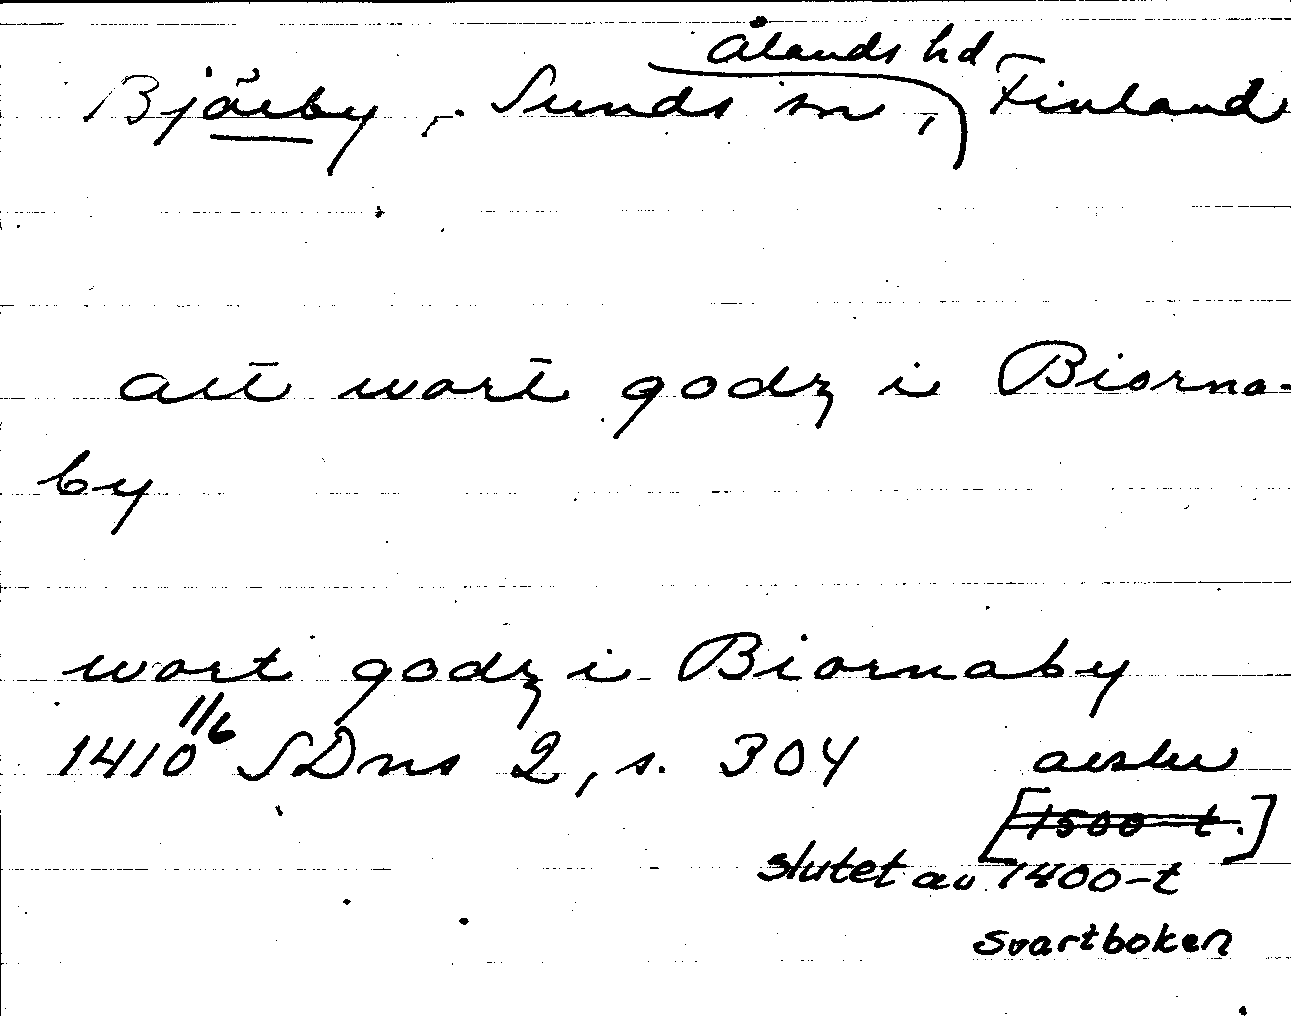 Ålands hd
Bjärby, Sunds sn, Finland
alt wart godz i Biorna-
by
wart godz i Biornaby
1410 11/6 SDns 2, s. 304 avskr
[1500-t.]
slutet av 1400-t
svartboken